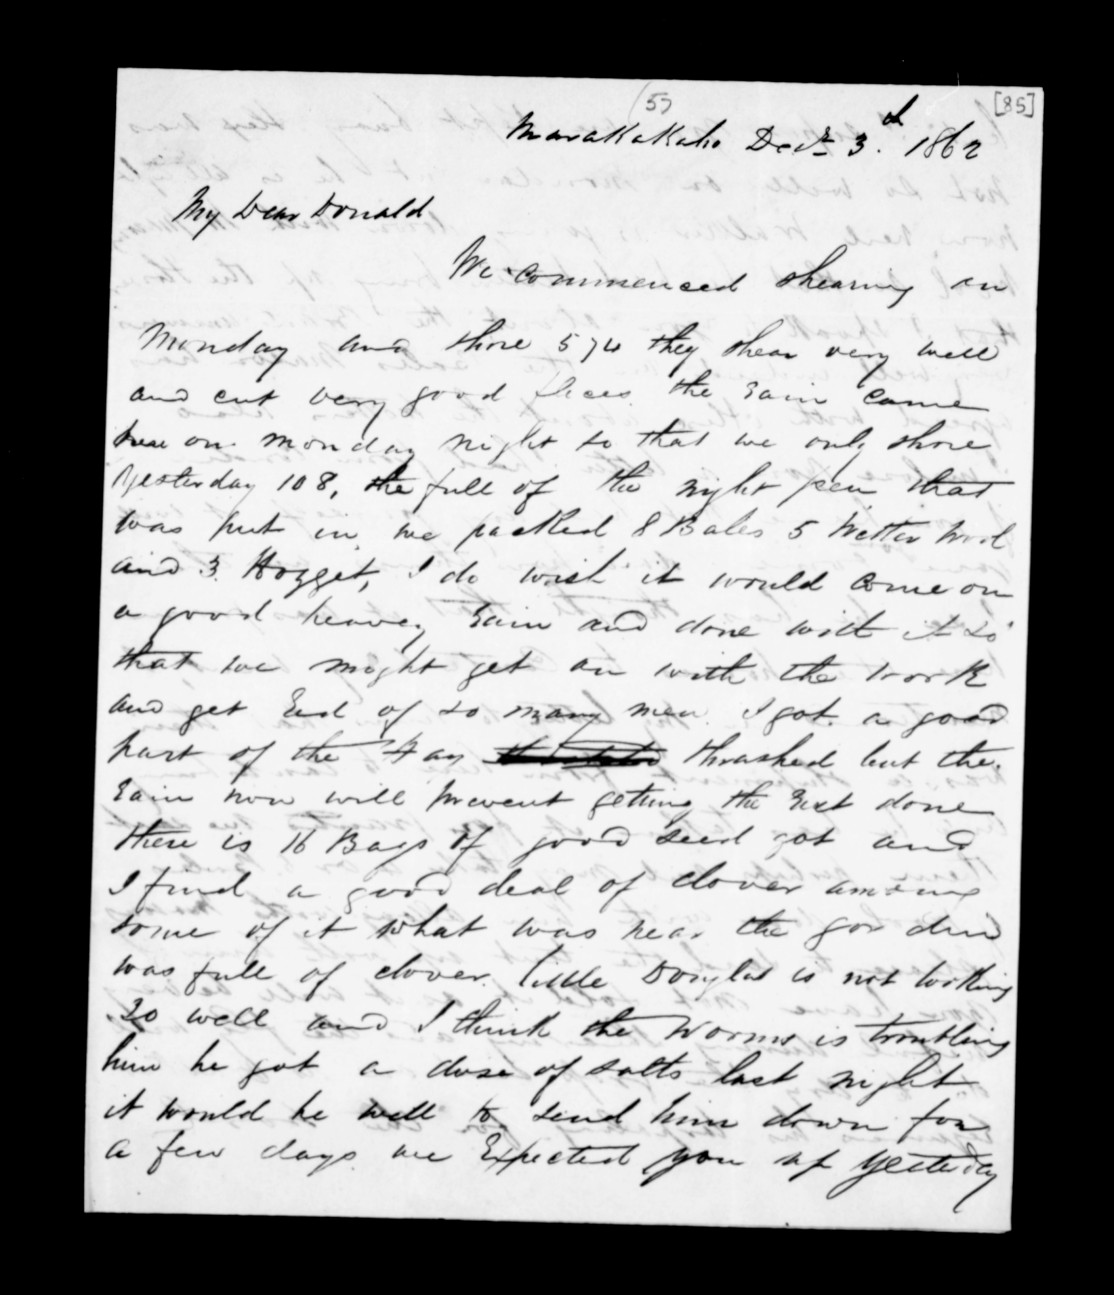 (57
[85]
Marakakaho Decr 3.d 1862
My Dear Donald
We commenced shearing on
Monday and shore 574 they shear very well
and cut very good flices the Rain came
here on Monday night so that we only shore
Yesterday 108, the full of the night pen that
was put in we packed 8 Bales 5 Wether Wool
and 3 Hogget, I do wish it would come on
a good heavey Rain and done with it so
that we might get on with the work
and get Rid of so many men. I got a good
part of the Hay thrashed but the
Rain now will prevent getting the Rest done
there is 16 Bags of good seed got and
I find a good deal of clover among
some of it what was near the gorden
was full of clover. little Douglas is not looking
so well and I think the Worms is troubling
him he got a dose of salts last night.
it would be well to send him down for
a few days we Expected you up yesterday